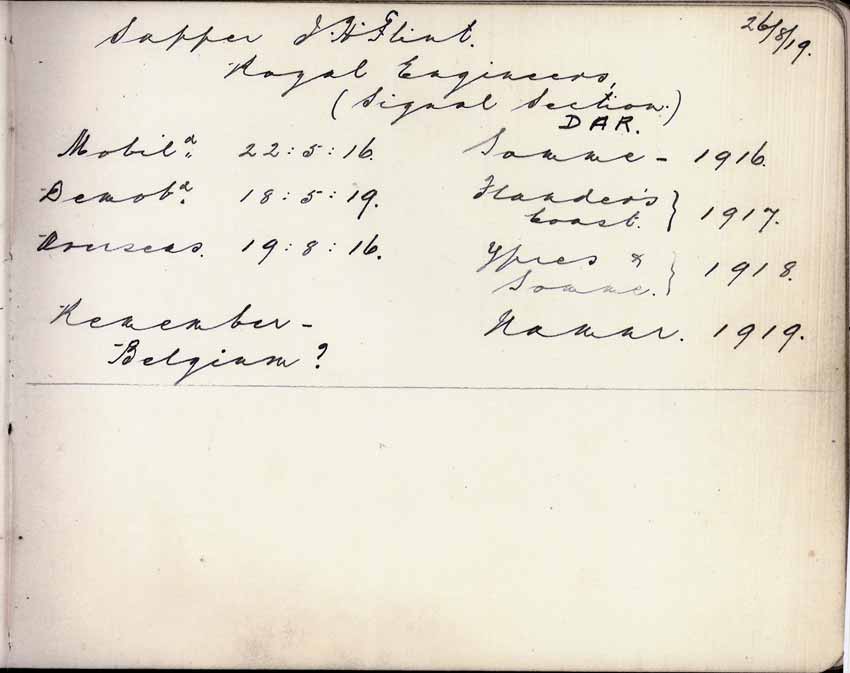 26/8/19.
Sapper J. H. Flint.
Royal Engineers,
(Signal Section.)
DAR.
Mobil^d. 22:5:16.
Demob^d. 18:5:19.
Overseas. 19:8:16.
Remember -
Belgium?
Somme - 1916.
Flander's
Coast. } 1917.
Ypres &
Somme. } 1918.
Namur. 1919.